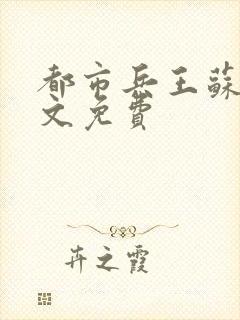 都市兵王蘇
文免費
卉之霞